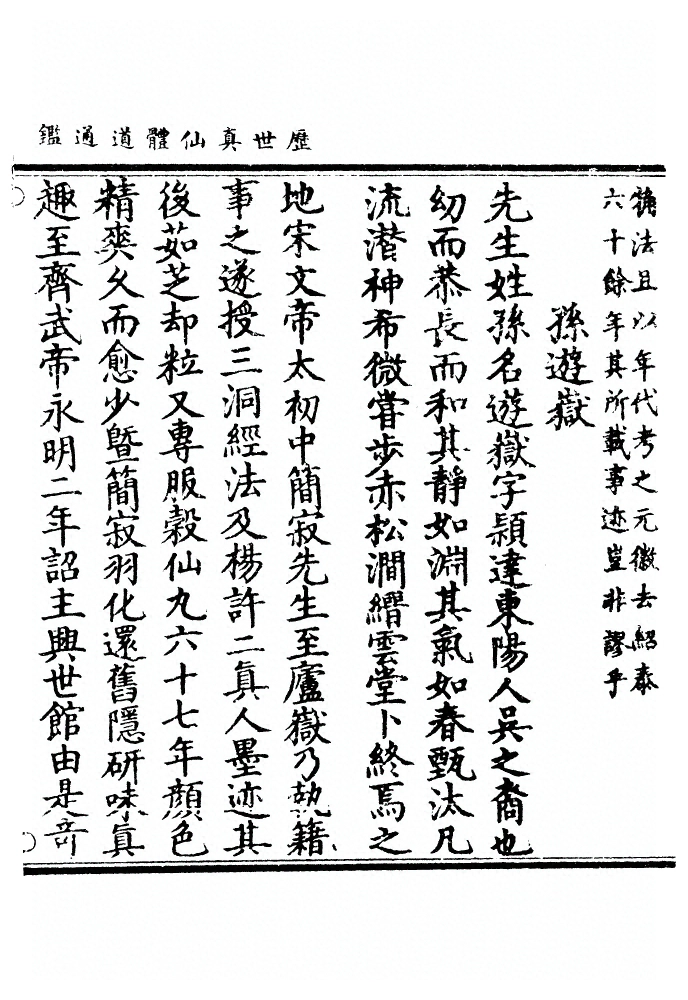 歷世真仙體道通鑑
法且以年代考之元徽去紹泰
六十餘年其所載事迹豈非謬乎
孫遊嶽
先生姓孫名遊嶽字穎達東陽人吳之裔也
幼而恭長而和其靜如淵其氣如春甄汰凡
流潛神希微嘗步赤松澗縉雲堂卜終焉之
地宋文帝太初中簡寂先生至廬嶽乃執籍
事之遂授三洞經法及楊許二真人墨迹其
後茹芝却粒又專服穀仙丸六十七年顏色
精爽久而愈少暨簡寂羽化還舊隱研味真
趣至齊武帝永明二年詔主興世館由是奇